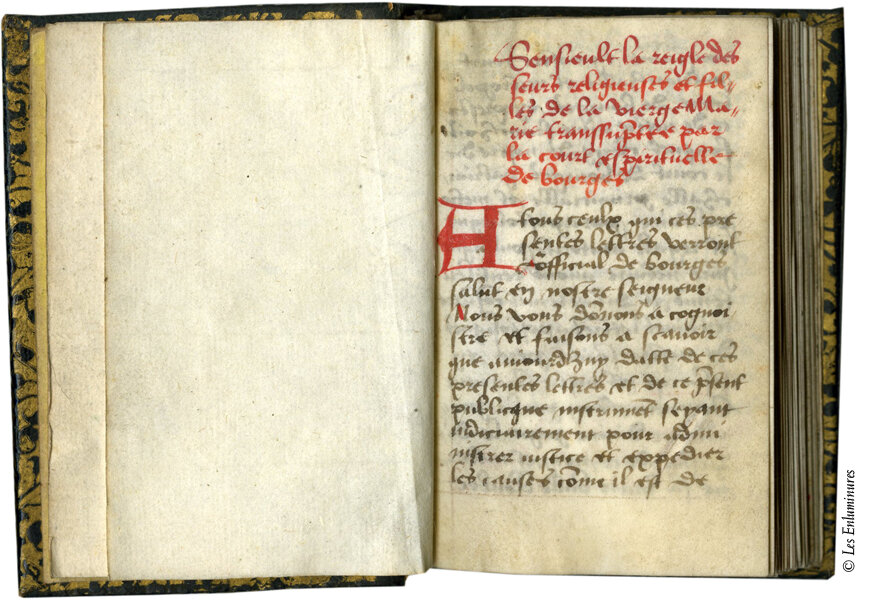 Sensieult la reigle des
seurs religieuses et fil-
les de la vierge Ma-
rie transsuptee par
la court espirituelle
de bourges
A tous ceulx qui ces pre
sentes lettres verront
official de bourges
salut en nostre seigneur
Nous vous donons a cognoi
stre et faisons a scavoir
que aujourdhuy datte de ces
presentes lettres et de ce psent
publicque instrument seyant
iudiciairement pour admi
nistrer iustice et expedier
les causes come il est de
© Les Enluminures